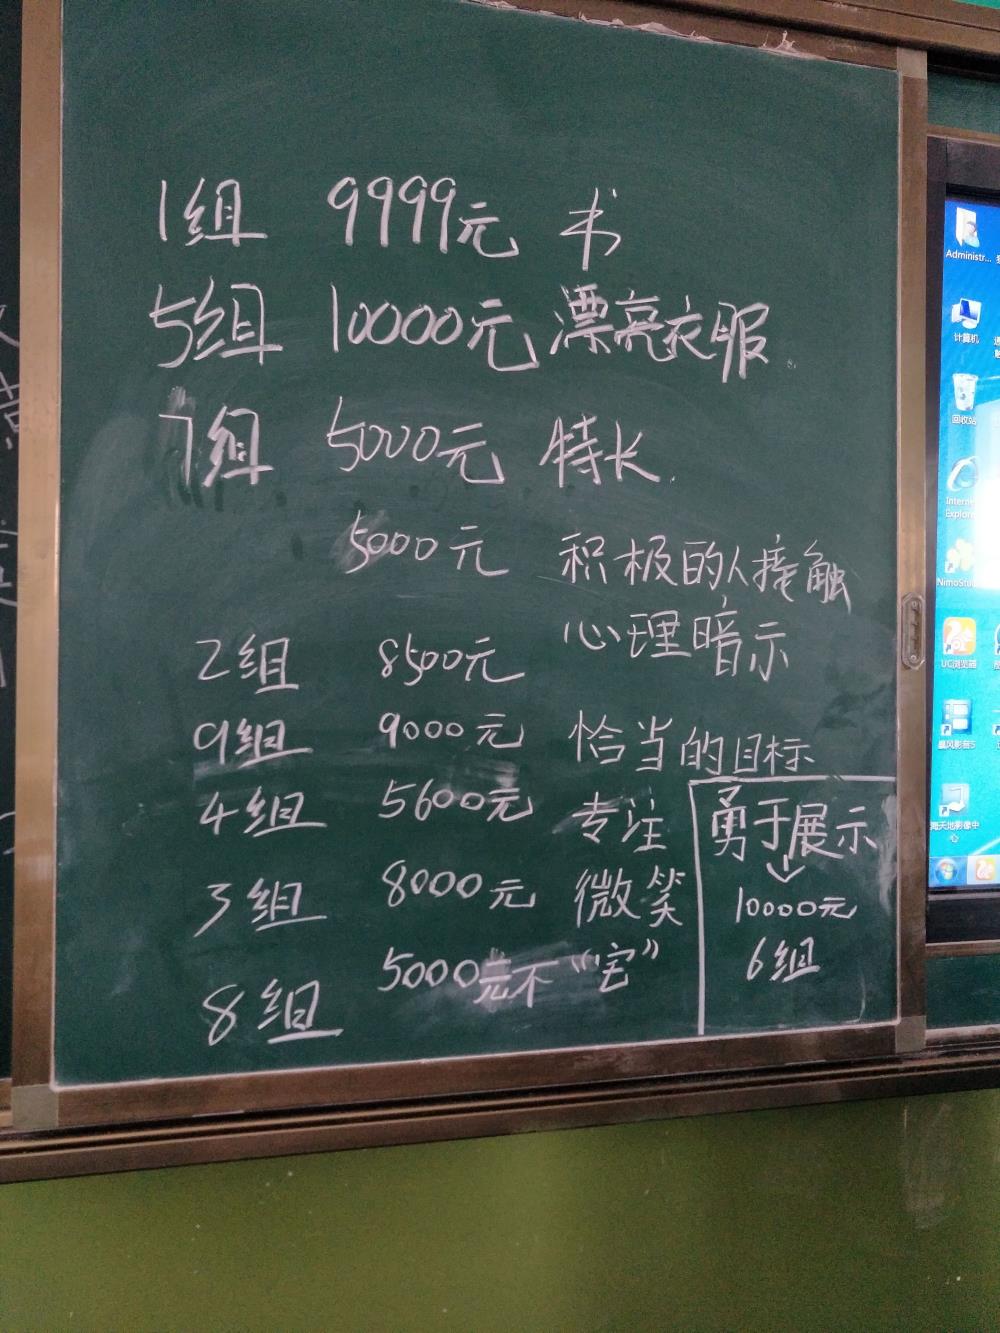 1组 9999元 书
5组 10000元 漂亮衣服.
7组 5000元 特长.
5000元 积极的人接触
2组 8500元 心理暗示
9组 9000元 恰当的目标
4组 5600元 专注
3组 8000元 微笑
8组 5000元 不“宅”
勇于展示
↓
10000元
6组
Administr...
计算机
回收站
Interne
Explor
NimoStu
UC浏览器
暴风影音5
海天地影像中
心